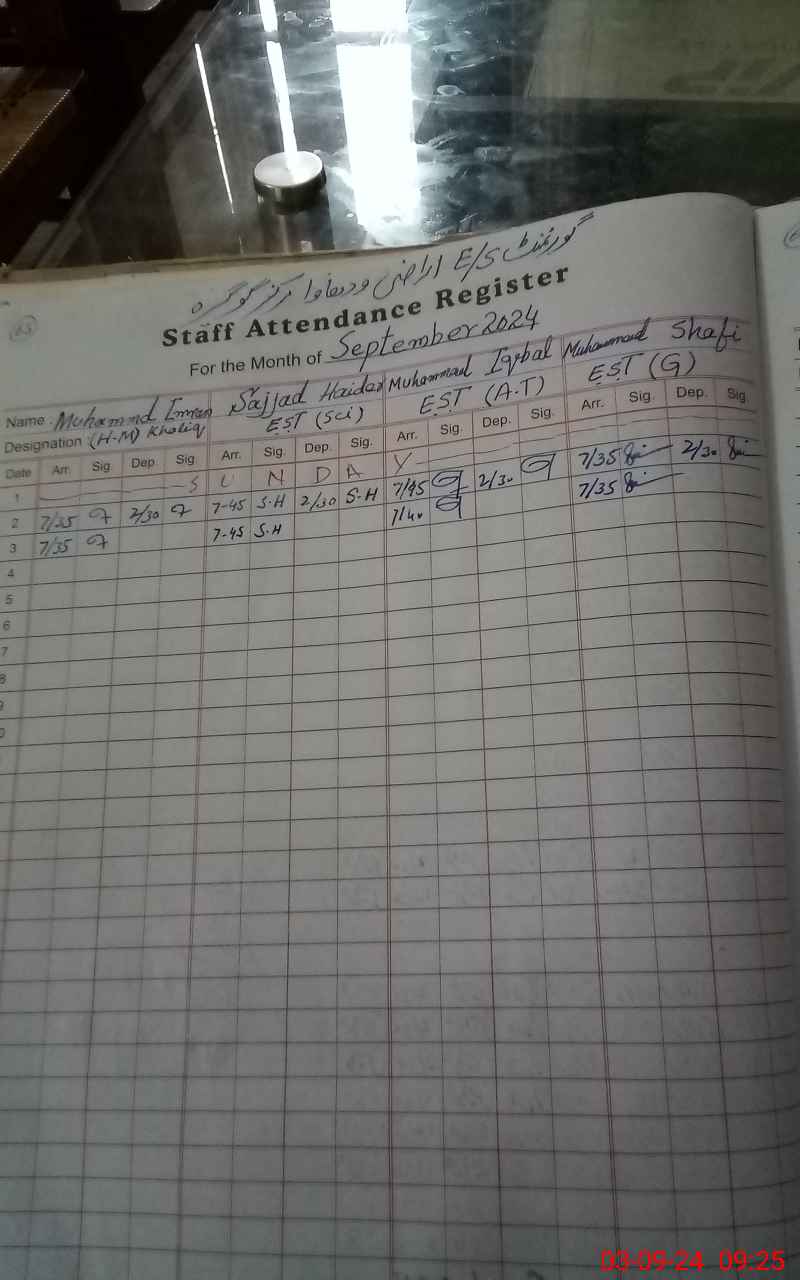 گورنمنٹ E/S اراضی ودھاوا مرکز گوگیرہ
Staff Attendance Register
For the Month of September 2024
Name Muhammad Imran Sajjad Haider Muhammad Iqbal Muhammad Shafi
Designation (H-M) Khaliq EST (Sci) EST (A.T) EST (G)
Date Arr. Sig. Dep. Sig. Arr. Sig. Dep. Sig. Arr. Sig. Dep. Sig. Arr. Sig. Dep. Sig.
1 S U N D A Y
2 7/35 2/30 7-45 S.H 2/30 S.H 7/45 2/30 7/35 2/30
3 7/35 7-45 S.H 7/40 7/35
4
5
6
7
8
9
0
03-09-24 09:25